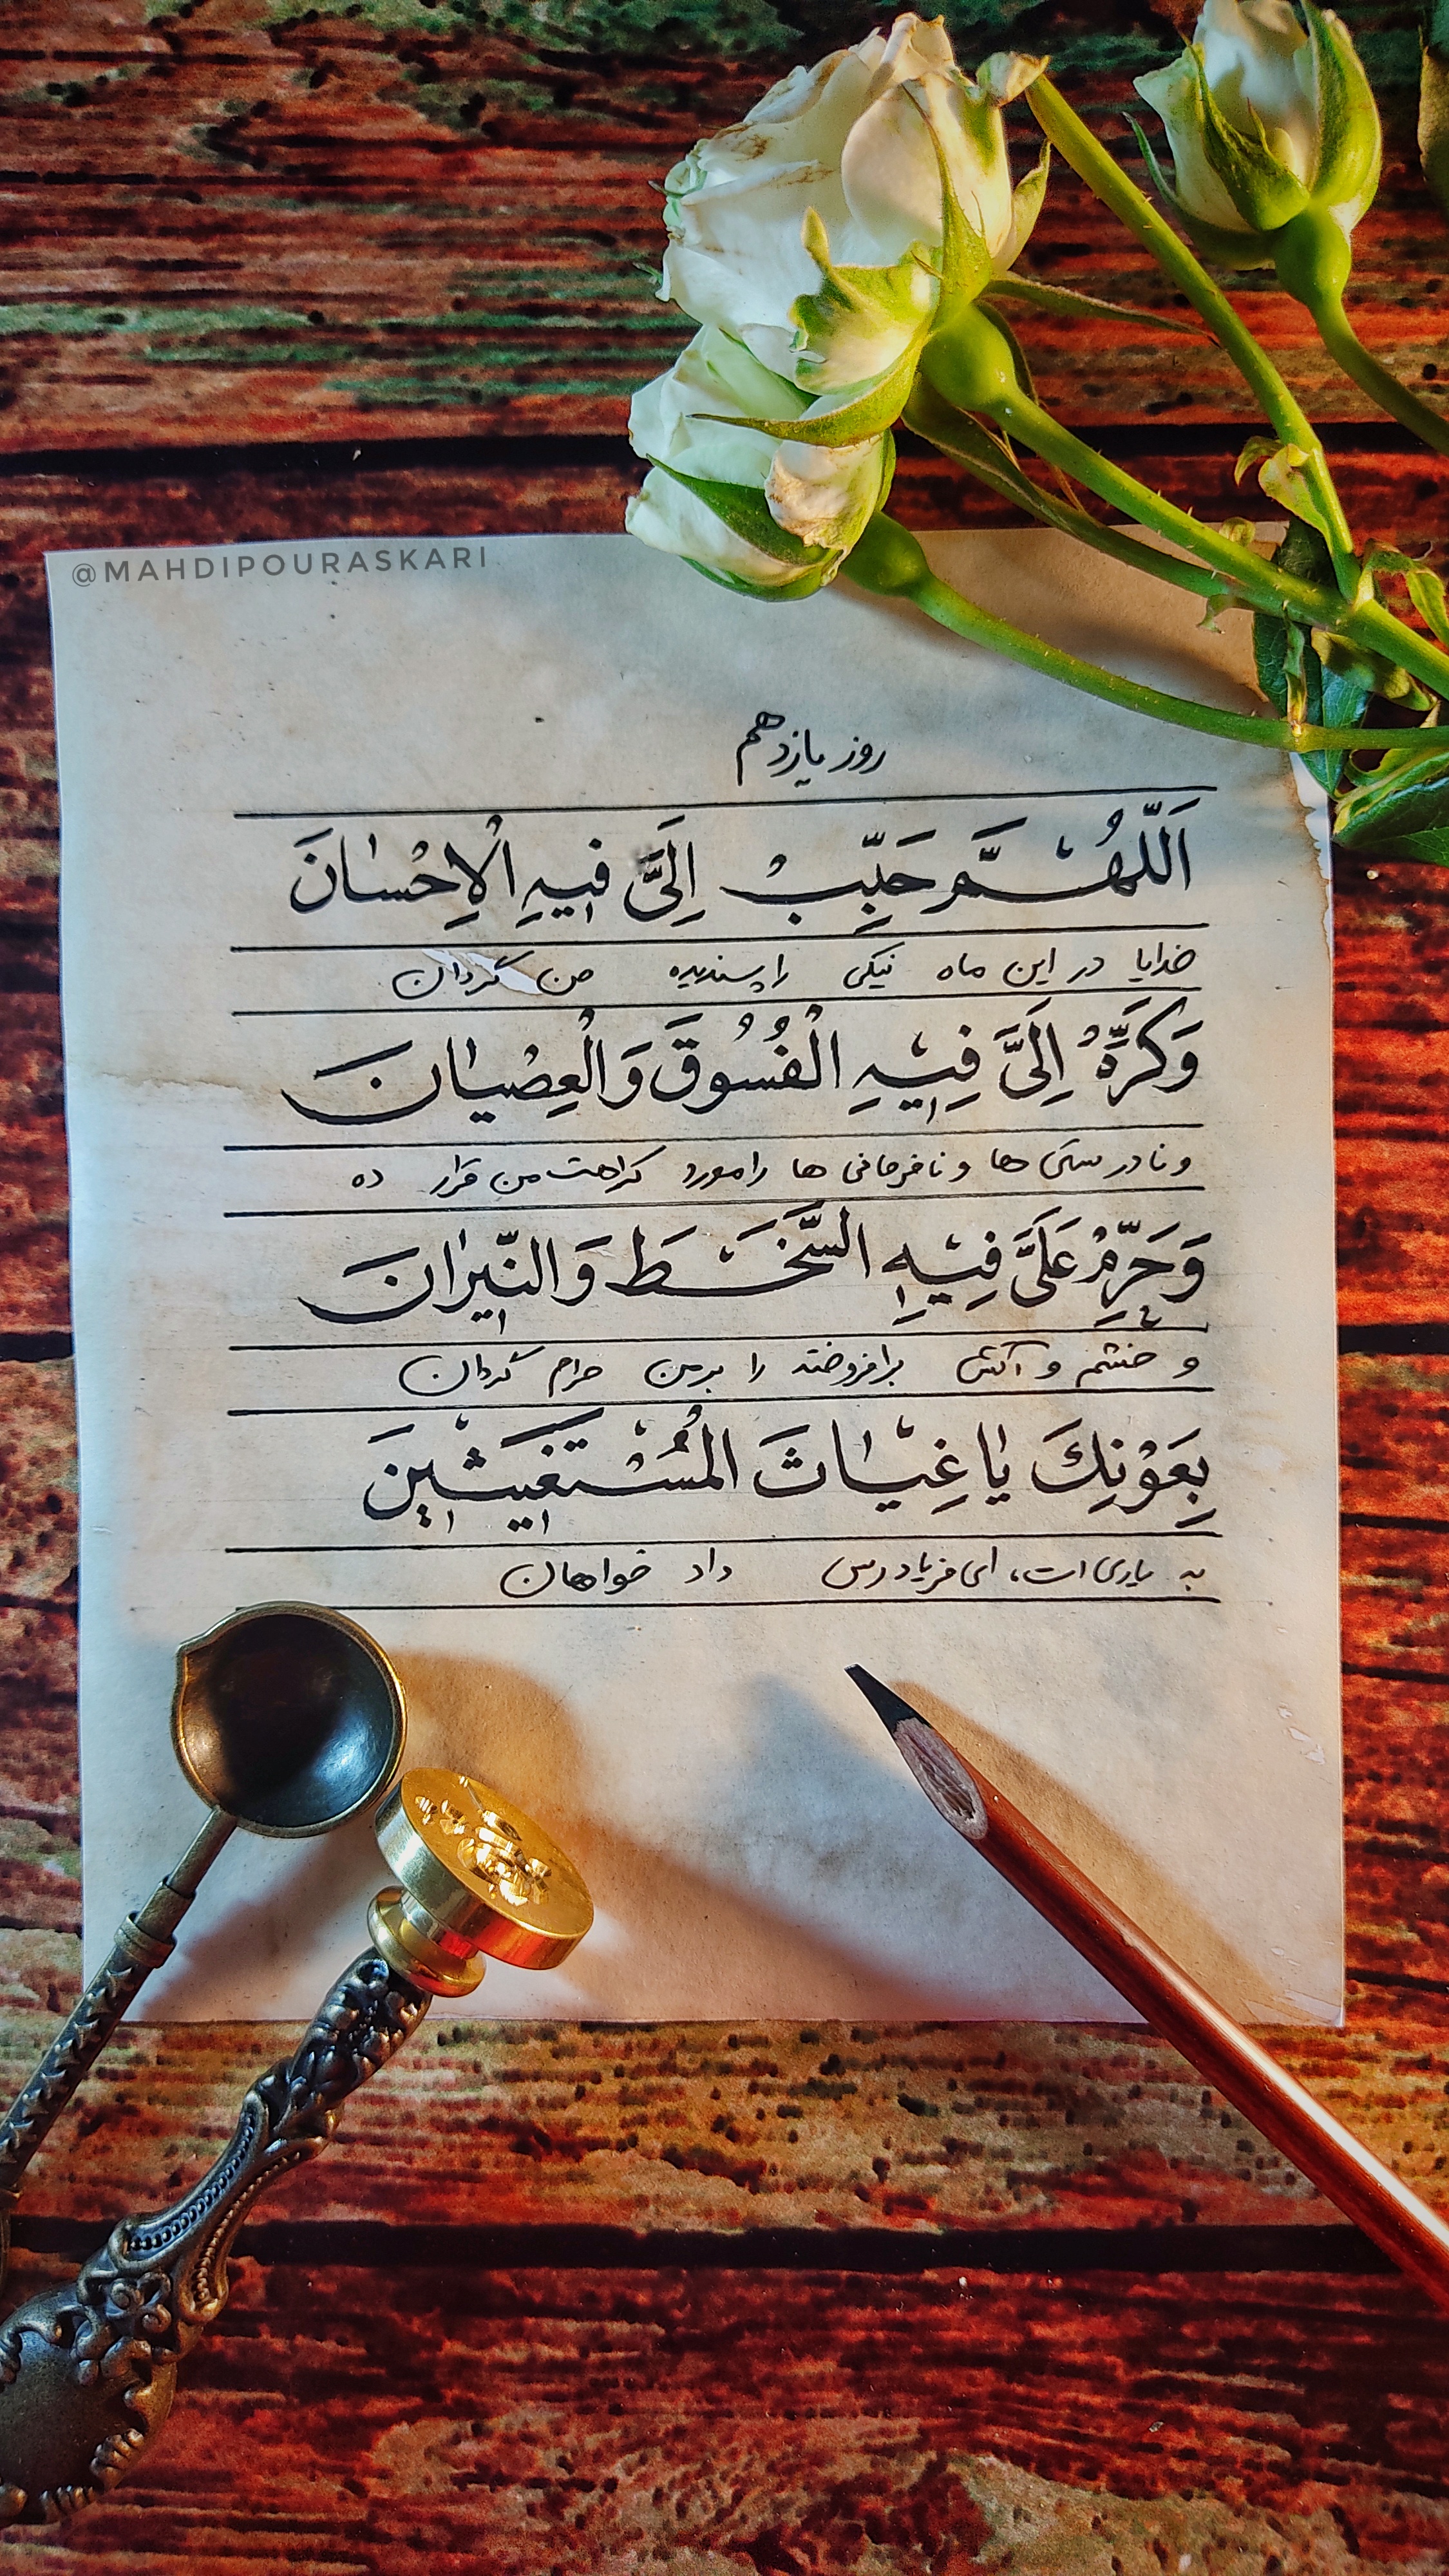 @MAHDIPOURASKARI
روز یازدهم
اَللّٰهُمَّ حَبِّبْ اِلَیَّ فیهِ الْاِحْسٰانَ
خدایا در این ماه نیکی را پسندیده من گردان
وَکَرِّهْ اِلَیَّ فِیْهِ الْفُسُوقَ وَالْعِصْیٰانَ
و نادرستی ها و نافرمانی ها را مورد کراهت من قرار ده
وَحَرِّمْ عَلَیَّ فِیْهِ السَّخَطَ وَالنّیرٰانَ
و خشم و آتش برافروخته را بر من حرام گردان
بِعَوْنِکَ یٰا غِیْٰاثَ الْمُسْتَغیثینَ
به یاری ات، ای فریادرس داد خواهان